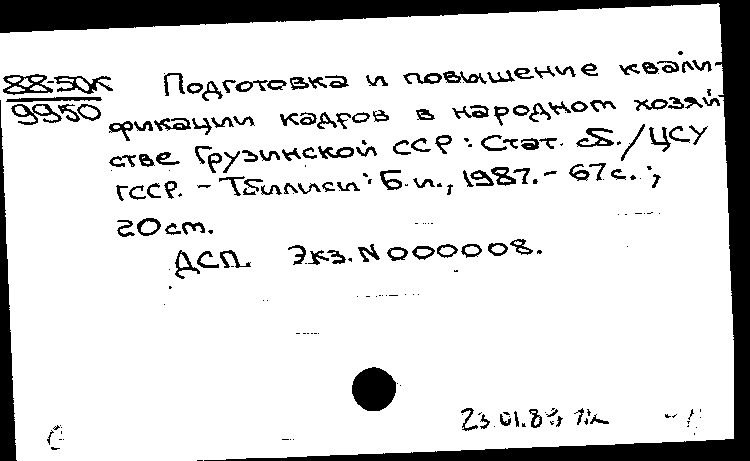 88-50К
9950
Подготовка и повышение квали-
фикации кадров в народном хозяй-
стве Грузинской ССР: Стат. сб./ЦСУ
ГССР. - Тбилиси: Б.и., 1987. - 67с.;
20 cm.
ДСП. Экз. N 000008.
23.01.8